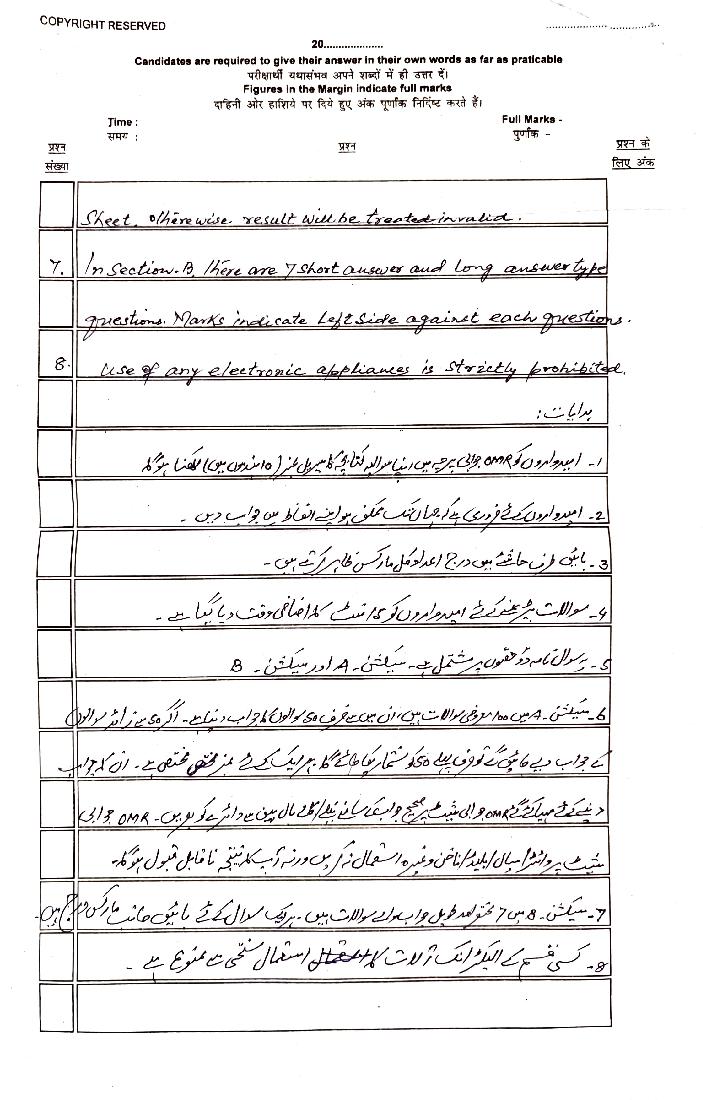 COPYRIGHT RESERVED
20...................
Candidates are required to give their answer in their own words as far as praticable
परीक्षार्थी यथासंभव अपने शब्दों में ही उत्तर दें।
Figures in the Margin indicate full marks
दाहिनी ओर हाशिये पर दिये हुए अंक पूर्णांक निर्दिष्ट करते हैं।
Time : Full Marks -
समय : पुर्णांक -
प्रश्न संख्या प्रश्न प्रश्न के लिए अंक
Sheet. Otherwise result will be treated invalid.
7. In Section-B, there are 7 short answer and long answer type
questions. Marks indicate Left Side against each questions.
8. Use of any electronic appliances is strictly prohibited.
ہدایات:
1- امیدواروں کو OMR جوابی پرچہ میں اپنا سوالیہ کتابچہ کا سیریل نمبر (10 ہندسوں میں) لکھنا ہوگا۔
2- امیدواروں کے لئے ضروری ہے کہ جہاں تک ممکن ہو اپنے الفاظ میں جواب دیں۔
3- بائیں طرف حاشئے میں درج اعداد کل مارکس ظاہر کرتے ہیں۔
4- سوالات پڑھنے کے لئے امیدواروں کو 15 منٹ کا اضافی وقت دیا گیا ہے۔
5- یہ سوال نامہ دو حصّوں پر مشتمل ہے۔ سیکشن-A اور سیکشن-B
6- سیکشن-A میں 100 معروضی سوالات ہیں، ان میں سے صرف 50 سوالوں کا جواب دینا ہے۔ اگر 50 سے زائد سوالوں
کے جواب دیے جائیں گے تو صرف پہلے 50 کو شمار کیا جائے گا۔ ہر ایک کے لئے 1 نمبر مختص ہے۔ ان کا جواب
دینے کے لئے مہیا کئے گئے OMR جوابی شیٹ پر صحیح جواب کے سامنے نیلے/کالے بال پین سے دائرے کو بھریں۔ OMR جوابی
شیٹ پر وائٹنر/سیال/بلیڈ/ناخن وغیرہ استعمال نہ کریں ورنہ آپ کا نتیجہ ناقابل قبول ہوگا۔
7- سیکشن-B میں 7 مختصر اور طویل جواب والے سوالات ہیں۔ ہر ایک سوال کے لئے بائیں جانب مارکس درج ہیں۔
8- کسی قسم کے الیکٹرانک آلات کا استعمال سختی سے ممنوع ہے۔